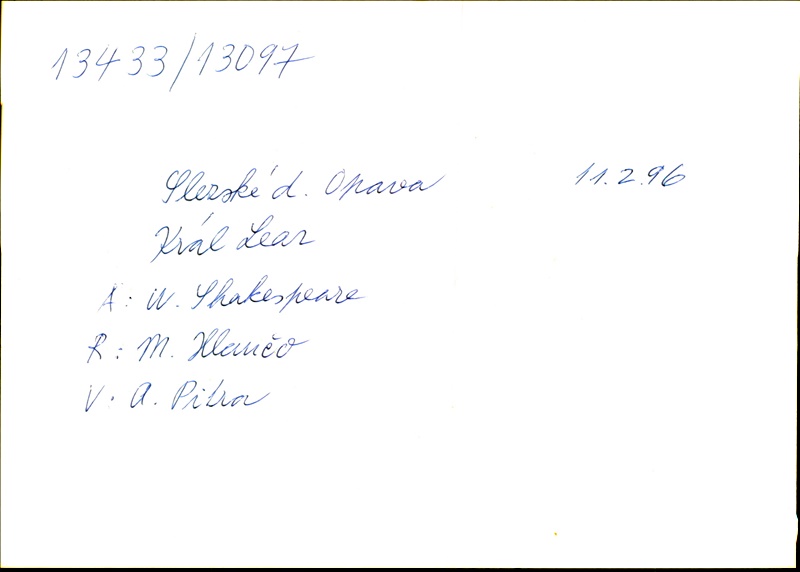 13433/13097
Slezské d. Opava 11.2.96
Král Lear
A: W. Shakespeare
R: M. Hlaučo
V: A. Pitra